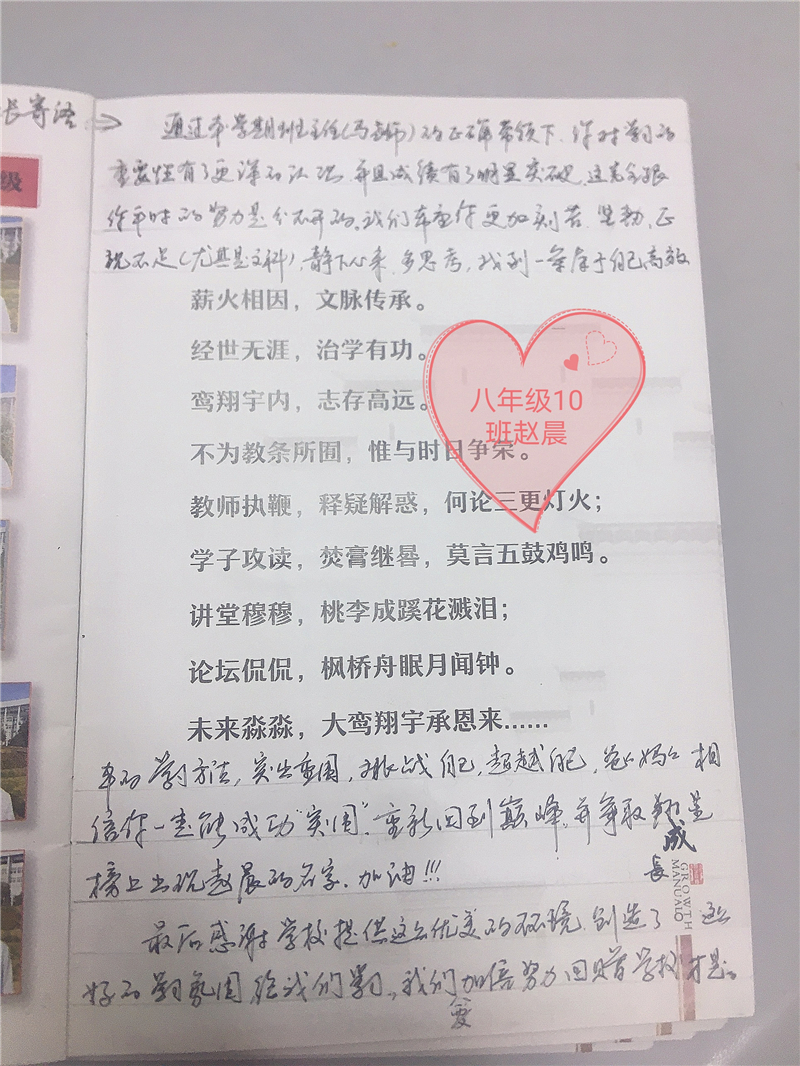 长寄语
级
通过本学期班主任(马老师)的正确带领下,你对学习的
重要性有了更深的认识,并且成绩有了明显突破,这完全跟
你平时的努力是分不开的。我们希望你更加刻苦、坚韧、正
视不足(尤其是文科),静下心来,多思考,找到一条属于自己高效
薪火相因,文脉传承。
经世无涯,治学有功。
鸾翔宇内,志存高远。
不为教条所囿,惟与时日争荣。
教师执鞭,释疑解惑,何论三更灯火;
学子攻读,焚膏继晷,莫言五鼓鸡鸣。
讲堂穆穆,桃李成蹊花溅泪;
论坛侃侃,枫桥舟眠月闻钟。
未来淼淼,大鸾翔宇承恩来……
八年级10
班赵晨
率的学习方法,突出重围,挑战自己,超越自己,爸爸妈妈相
信你一定能成功"突围",重新回到巅峰,并争取翔星
榜上出现赵晨的名字,加油!!!
成
长
GROWTH
MANUAL
最后感谢学校提供这么优美的环境,创造了这么
好的学习氛围给我们学习,我们要加倍努力回赠学校才是。